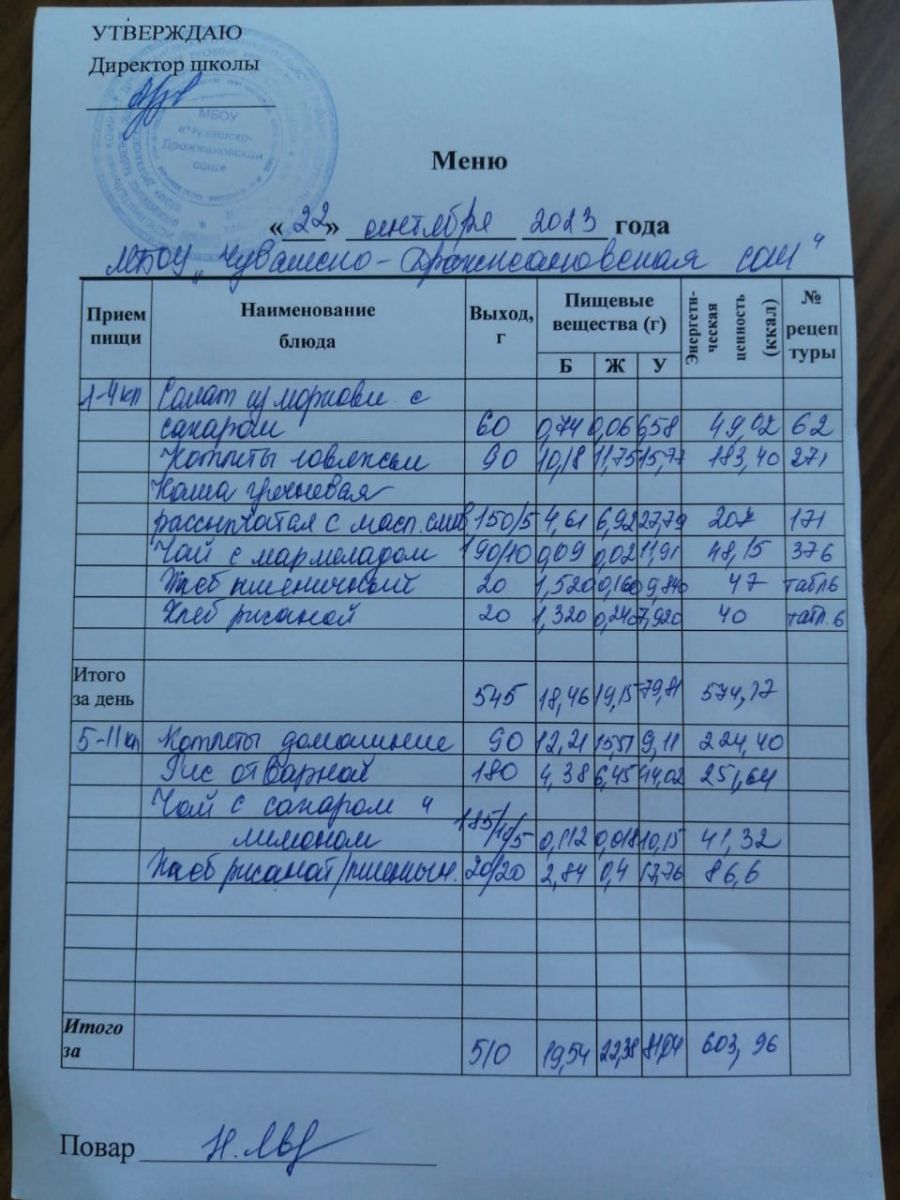 УТВЕРЖДАЮ
Директор школы
МБОУ
«Чувашско-
Дрожжановская
сош»
Меню
«22» сентября 2023 года
МБОУ „Чувашско-Дрожжановская сош"
Прием пищи Наименование блюда Выход, г Пищевые вещества (г) Энергети-ческая ценность (ккал) № рецеп туры
Б Ж У
1-4 кл Салат из моркови с
сахаром 60 0,74 0,06 6,58 49,02 62
Котлеты говяжьи 90 10,18 11,75 15,77 183,40 271
Каша гречневая
рассыпчатая с масл. слив 150/5 4,61 6,92 27,79 207 171
Чай с мармеладом 190/10 0,09 0,02 11,91 48,15 376
Хлеб пшеничный 20 1,520 0,160 9,840 47 табл6
Хлеб ржаной 20 1,320 0,240 7,920 40 табл.6
Итого
за день 545 18,46 19,15 79,81 574,17
5-11 кл Котлеты домашние 90 12,21 15,51 9,11 224,40
Рис отварной 180 4,38 6,45 44,02 251,64
Чай с сахаром и
лимоном 185/10/5 0,112 0,018 10,15 41,32
Хлеб ржаной/пшеничн. 20/20 2,84 0,4 17,76 86,6
Итого
за 510 19,54 22,38 81,04 603,96
Повар